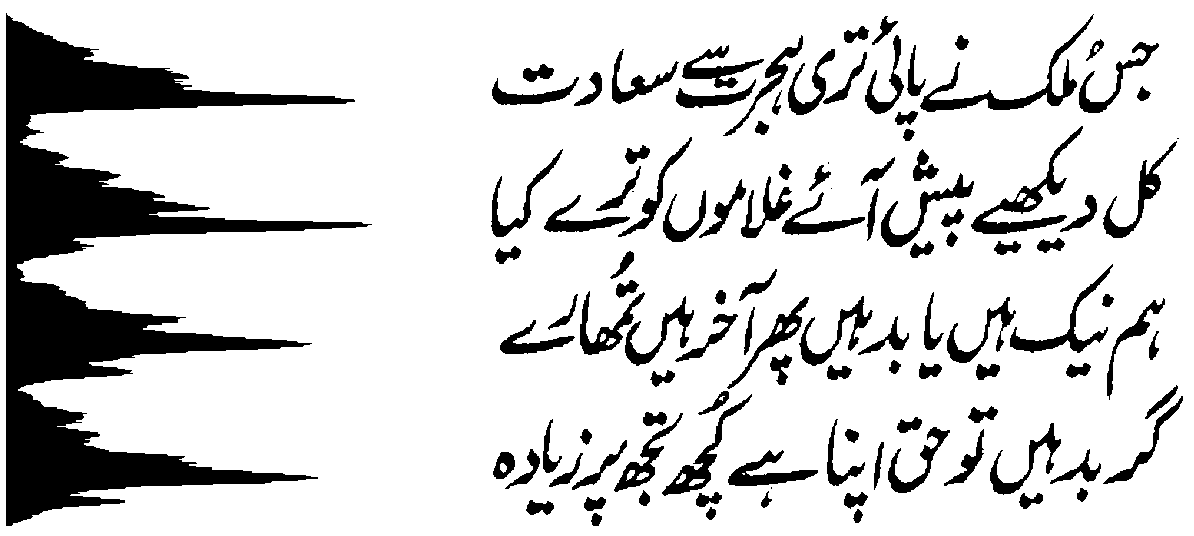 جسُ مُلک نے پائی تری ہجرت سے سعادت
کل دیکھیے پیش آئے غلاموں کو ترے کیا
ہم نیک ہیں یا بد ہیں پھر آخر ہیں تُمھارے
گر بد ہیں تو حق اپنا ہے کُچھ تجھ پر زیادہ